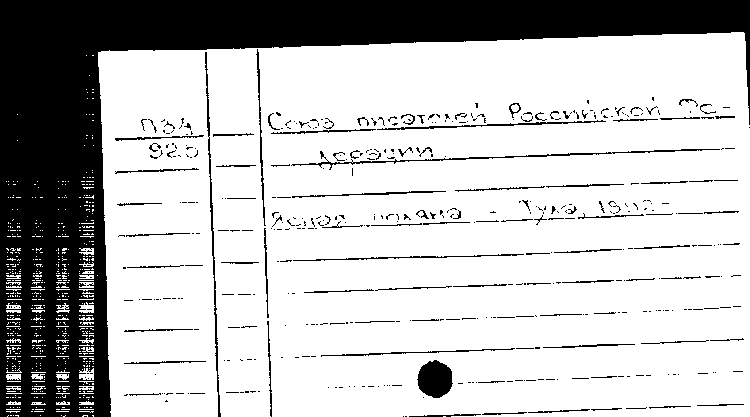 П34 Союз писателей Российской Фе-
925 дерации.
Ясная поляна - Тула,